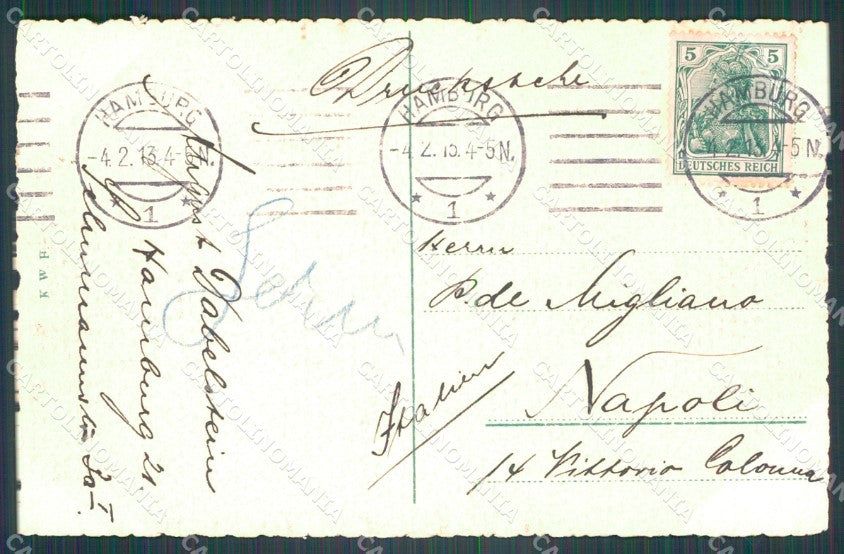 Drucksache
HAMBURG
-4.2.13.4-5N.
1
HAMBURG
-4.2.13.4-5N.
1
HAMBURG
4.2.13.4-5N.
1
5 5
DEUTSCHES REICH
Herrn
P. de Migliano
Napoli
14 Vittorio Colonna
Italien
August Dabelstein
Hamburg 21
KWH
CARTOLINOMANIA